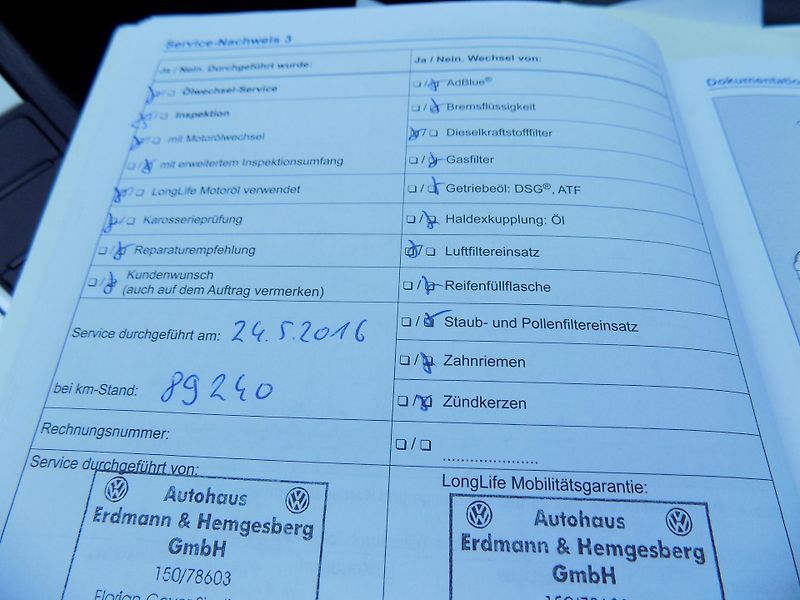 Service-Nachweis 3
Ja / Nein. Durchgeführt wurde:
☒/☐ Ölwechsel-Service
☒/☐ Inspektion
☒/☐ mit Motorölwechsel
☐/☒ mit erweitertem Inspektionsumfang
☒/☐ LongLife Motoröl verwendet
☒/☐ Karosserieprüfung
☐/☒ Reparaturempfehlung
☐/☒ Kundenwunsch
(auch auf dem Auftrag vermerken)
Service durchgeführt am: 24.5.2016
bei km-Stand: 89240
Rechnungsnummer:
Service durchgeführt von:
Autohaus
Erdmann & Hemgesberg
GmbH
150/78603
Ja / Nein. Wechsel von:
☐/☒ AdBlue®
☐/☒ Bremsflüssigkeit
☒/☐ Dieselkraftstofffilter
☐/☒ Gasfilter
☐/☒ Getriebeöl: DSG®, ATF
☐/☒ Haldexkupplung: Öl
☒/☐ Luftfiltereinsatz
☐/☒ Reifenfüllflasche
☐/☒ Staub- und Pollenfiltereinsatz
☐/☒ Zahnriemen
☐/☒ Zündkerzen
☐/☐ .....................
LongLife Mobilitätsgarantie:
Autohaus
Erdmann & Hemgesberg
GmbH